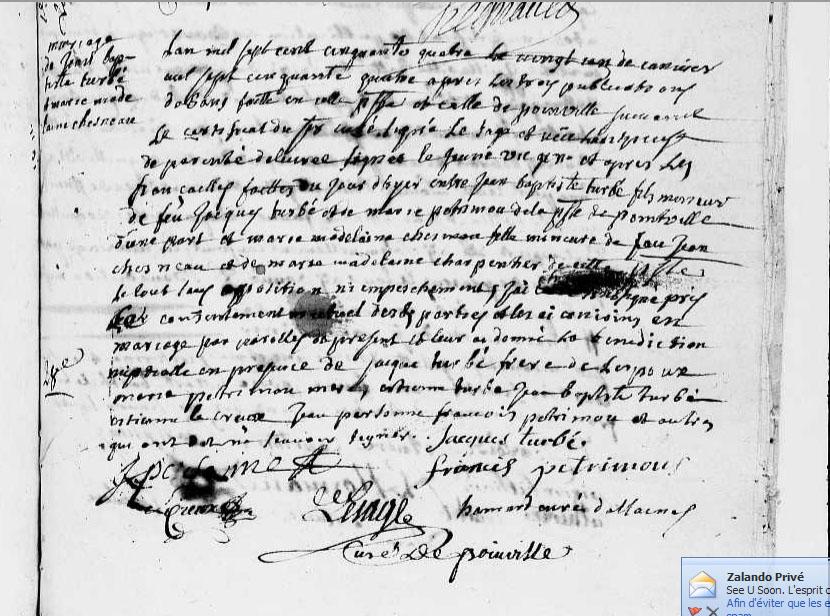 mariage
de Jean bap-
tiste turbé
et marie made
laine chesneau
Lan mil sept cent cinquante quatre le vingt un de Janvier
mil sept cinquante quatre apres les trois publications
de bans faitte en celle psse et celle de poinville
Le certificat du sr curé signée Le sage et
de parenté delivree signée le Jeune vic gn et apres les
fiancailles faittes du Jour dhyer entre Jean baptiste turbé fils mineur
de feu Jacques turbé et de marie petrimou de la psse de pointville
dune part et marie madelaine chesneau fille mineure de feu Jean
chesneau et de marie madelaine charpentier de cette psse
Le tout sans opposition ni empeschement Jai soussigne pris
le consentement mutuel desd parties et les ai conioins en
mariage par parolles de present et leur ai donné la benediction
nuptialle en presence de Jacque turbé frere de lespoux
marie petrimou mere, estienne turbé Jean baptiste turbé
estienne le creux Jean personne francois petrimou et autres
qui ont dit ne scavoir signer. Jacques turbé.
francois petrimous
le creux Lesage hamard curé dallaines
Curé De poinville
Zalando Privé
See U Soon. L'esprit d
Afin d'éviter que les e
spam